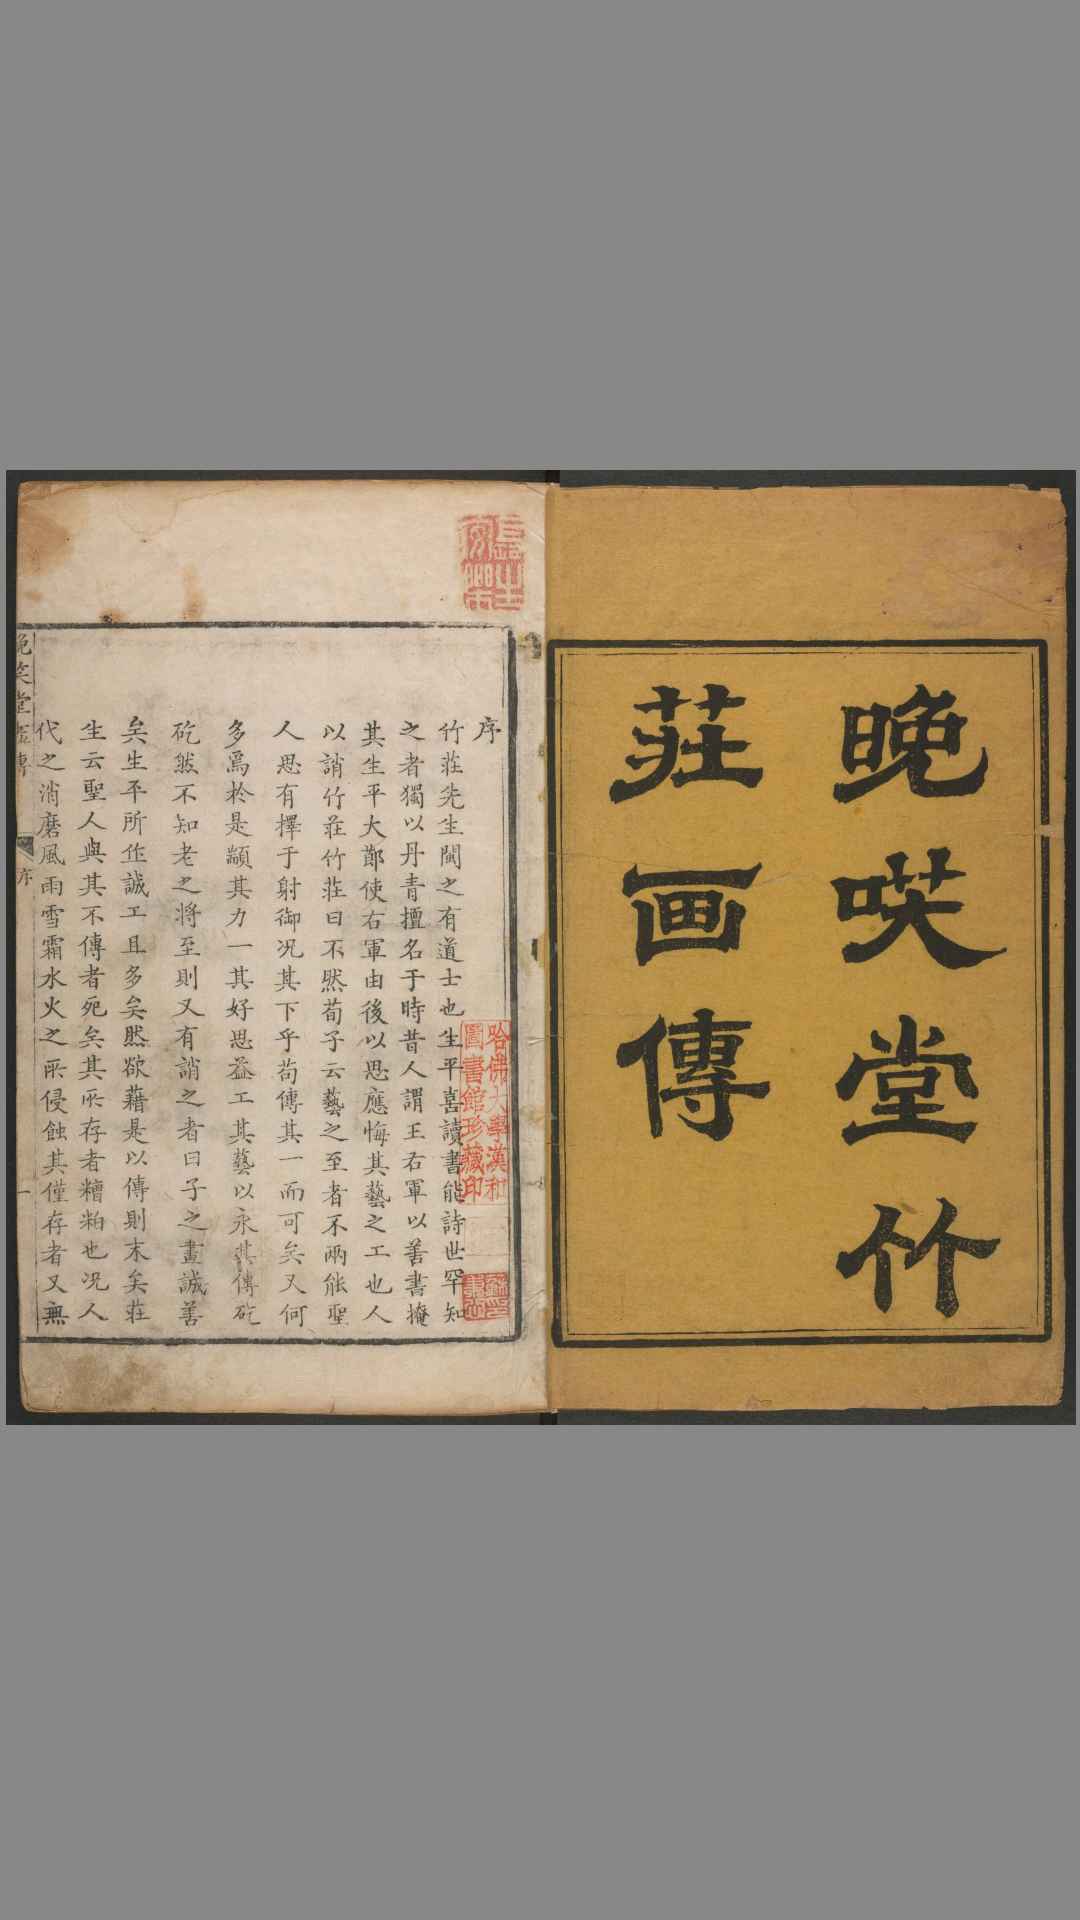 晚唉堂竹
莊画傳
序
竹莊先生閩之有道士也生平喜讀書能詩世罕知
之者獨以丹青擅名于時昔人謂王右軍以善書掩
其生平大鄭使右軍由後以思應悔其藝之工也人
以誚竹莊竹莊曰不然荀子云藝之至者不兩能聖
人思有擇于射御况其下乎苟傳其一而可矣又何
多焉於是顓其力一其好思益工其藝以永其傳矻
矻然不知老之將至則又有誚之者曰子之畫誠善
矣生平所作誠工且多矣然欲藉是以傳則末矣莊
生云聖人與其不傳者死矣其所存者糟粕也况人
代之消磨風雨雪霜水火之所侵蝕其僅存者又無
晚笑堂畫傳
序
一
哈佛大學漢和
圖書館珍藏印